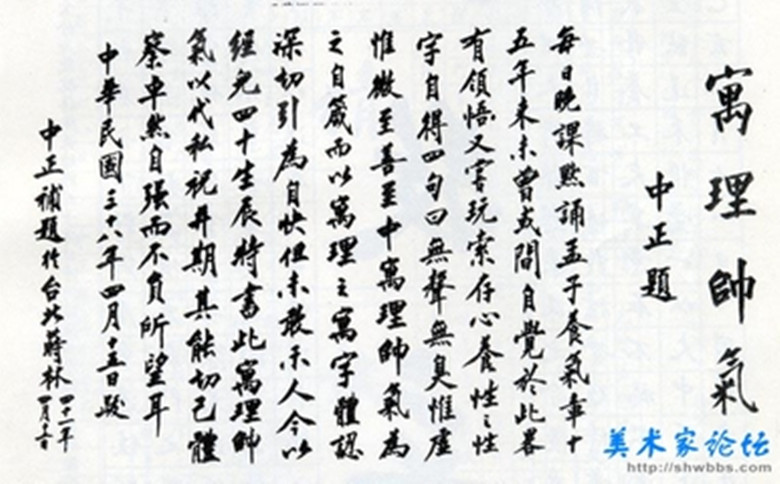 寓理帥氣
中正題
每日晚課默誦孟子養氣章十
五年來未曾或間自覺於此畧
有領悟又嘗玩索存心養性之性
字自得四句曰無聲無臭惟虛
惟微至善至中寓理帥氣為
之自箴而以寓理之寓字體認
深切引為自快但未敢示人今以
經兒四十生辰特書此寓理帥
氣以代私祝并期其能切己體
察卓然自强而不負所望耳
中華民國三十八年四月十五日
中正補題於台北蔣林
四十一年
美术家论坛
http://shwbbs.com